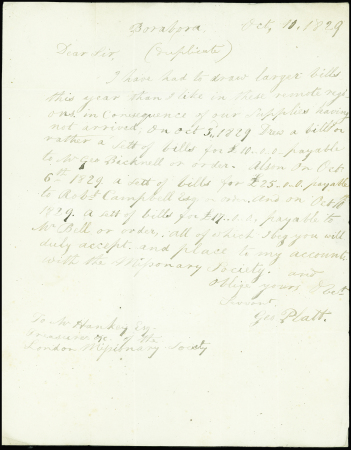 Borabora Oct, 10. 1829
Dear Sir, (replicate)
I have had to draw larger bills
this year than I like in these remote regi
ons. in consequence of our Supplies having
not arrived. On Oct 5, 1829 Drew a bill or
rather a sett of bills for £10.. payable
to Mr Geo Bicknell or order. Also on Oct
6th 1829 a sett of bills for £25.. payable
to Robt Campbell Esq and on Oct
1829. a sett of bills for payable to
Mr Bell or order. All of which I beg you will
duly accept. and place to my account
with the Missionary Society. and
Oblige yours
Servant
Geo. Platt.
To Mr Hankey Esq.
Treasurer &c. of the
London Missionary Society